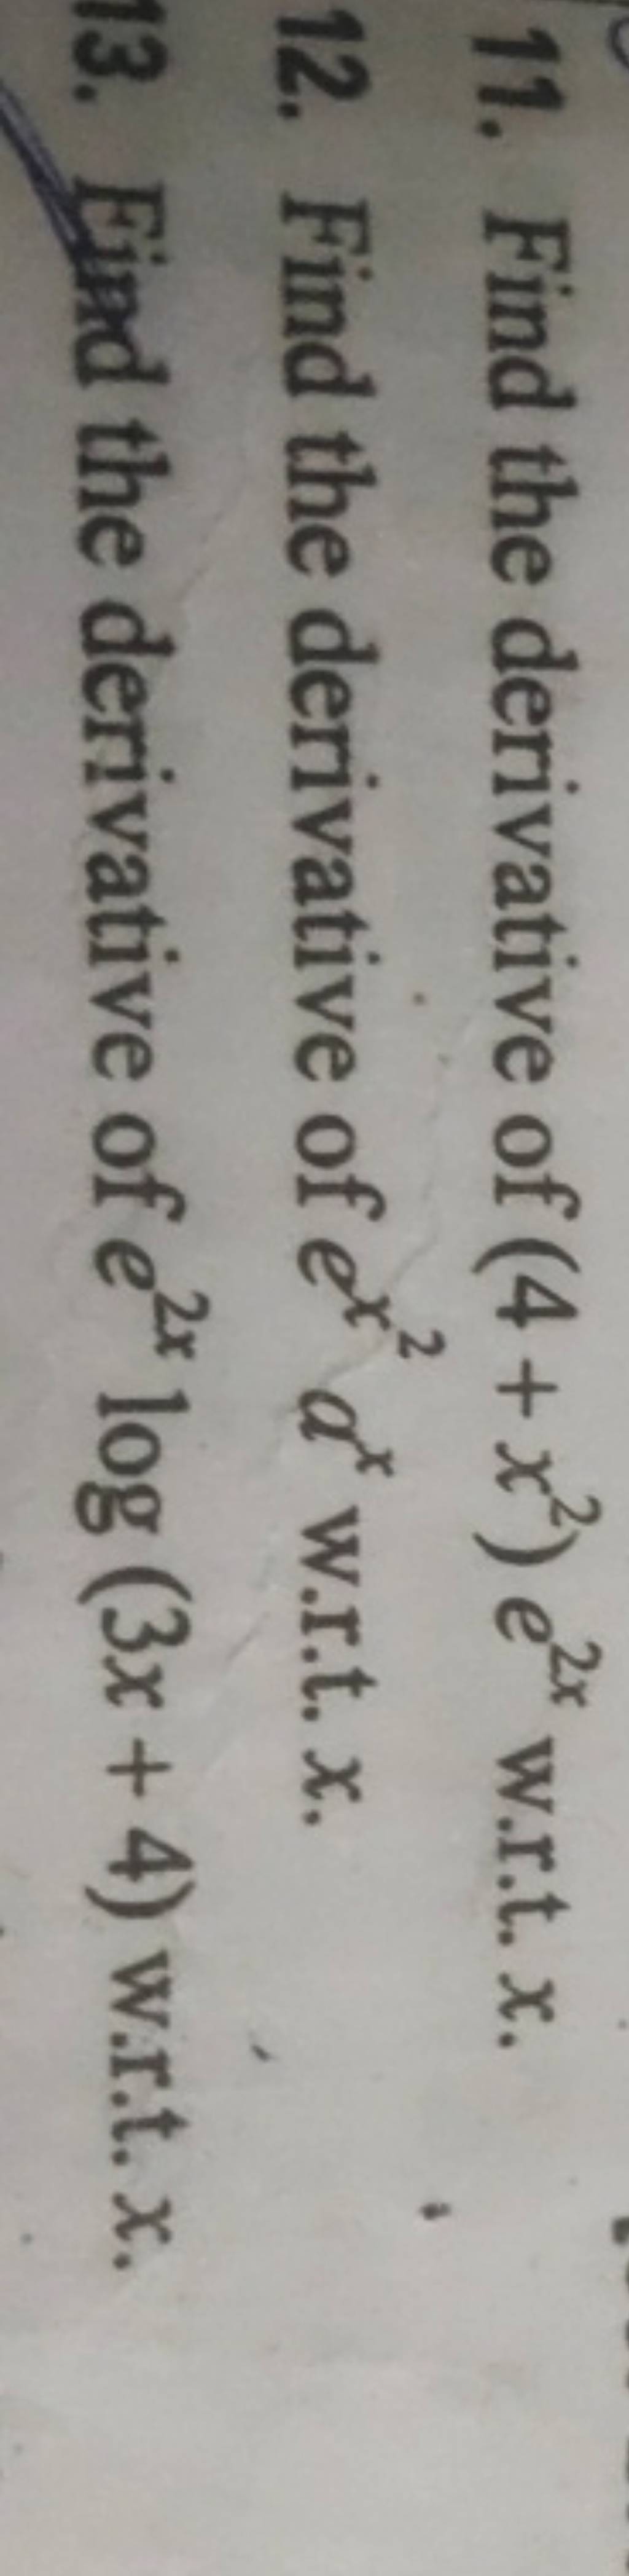 11. Find the derivative of (4 + x²) e²ˣ w.r.t. x.
12. Find the derivative of e^x² aˣ w.r.t. x.
13. Find the derivative of e²ˣ log (3x + 4) w.r.t. x.